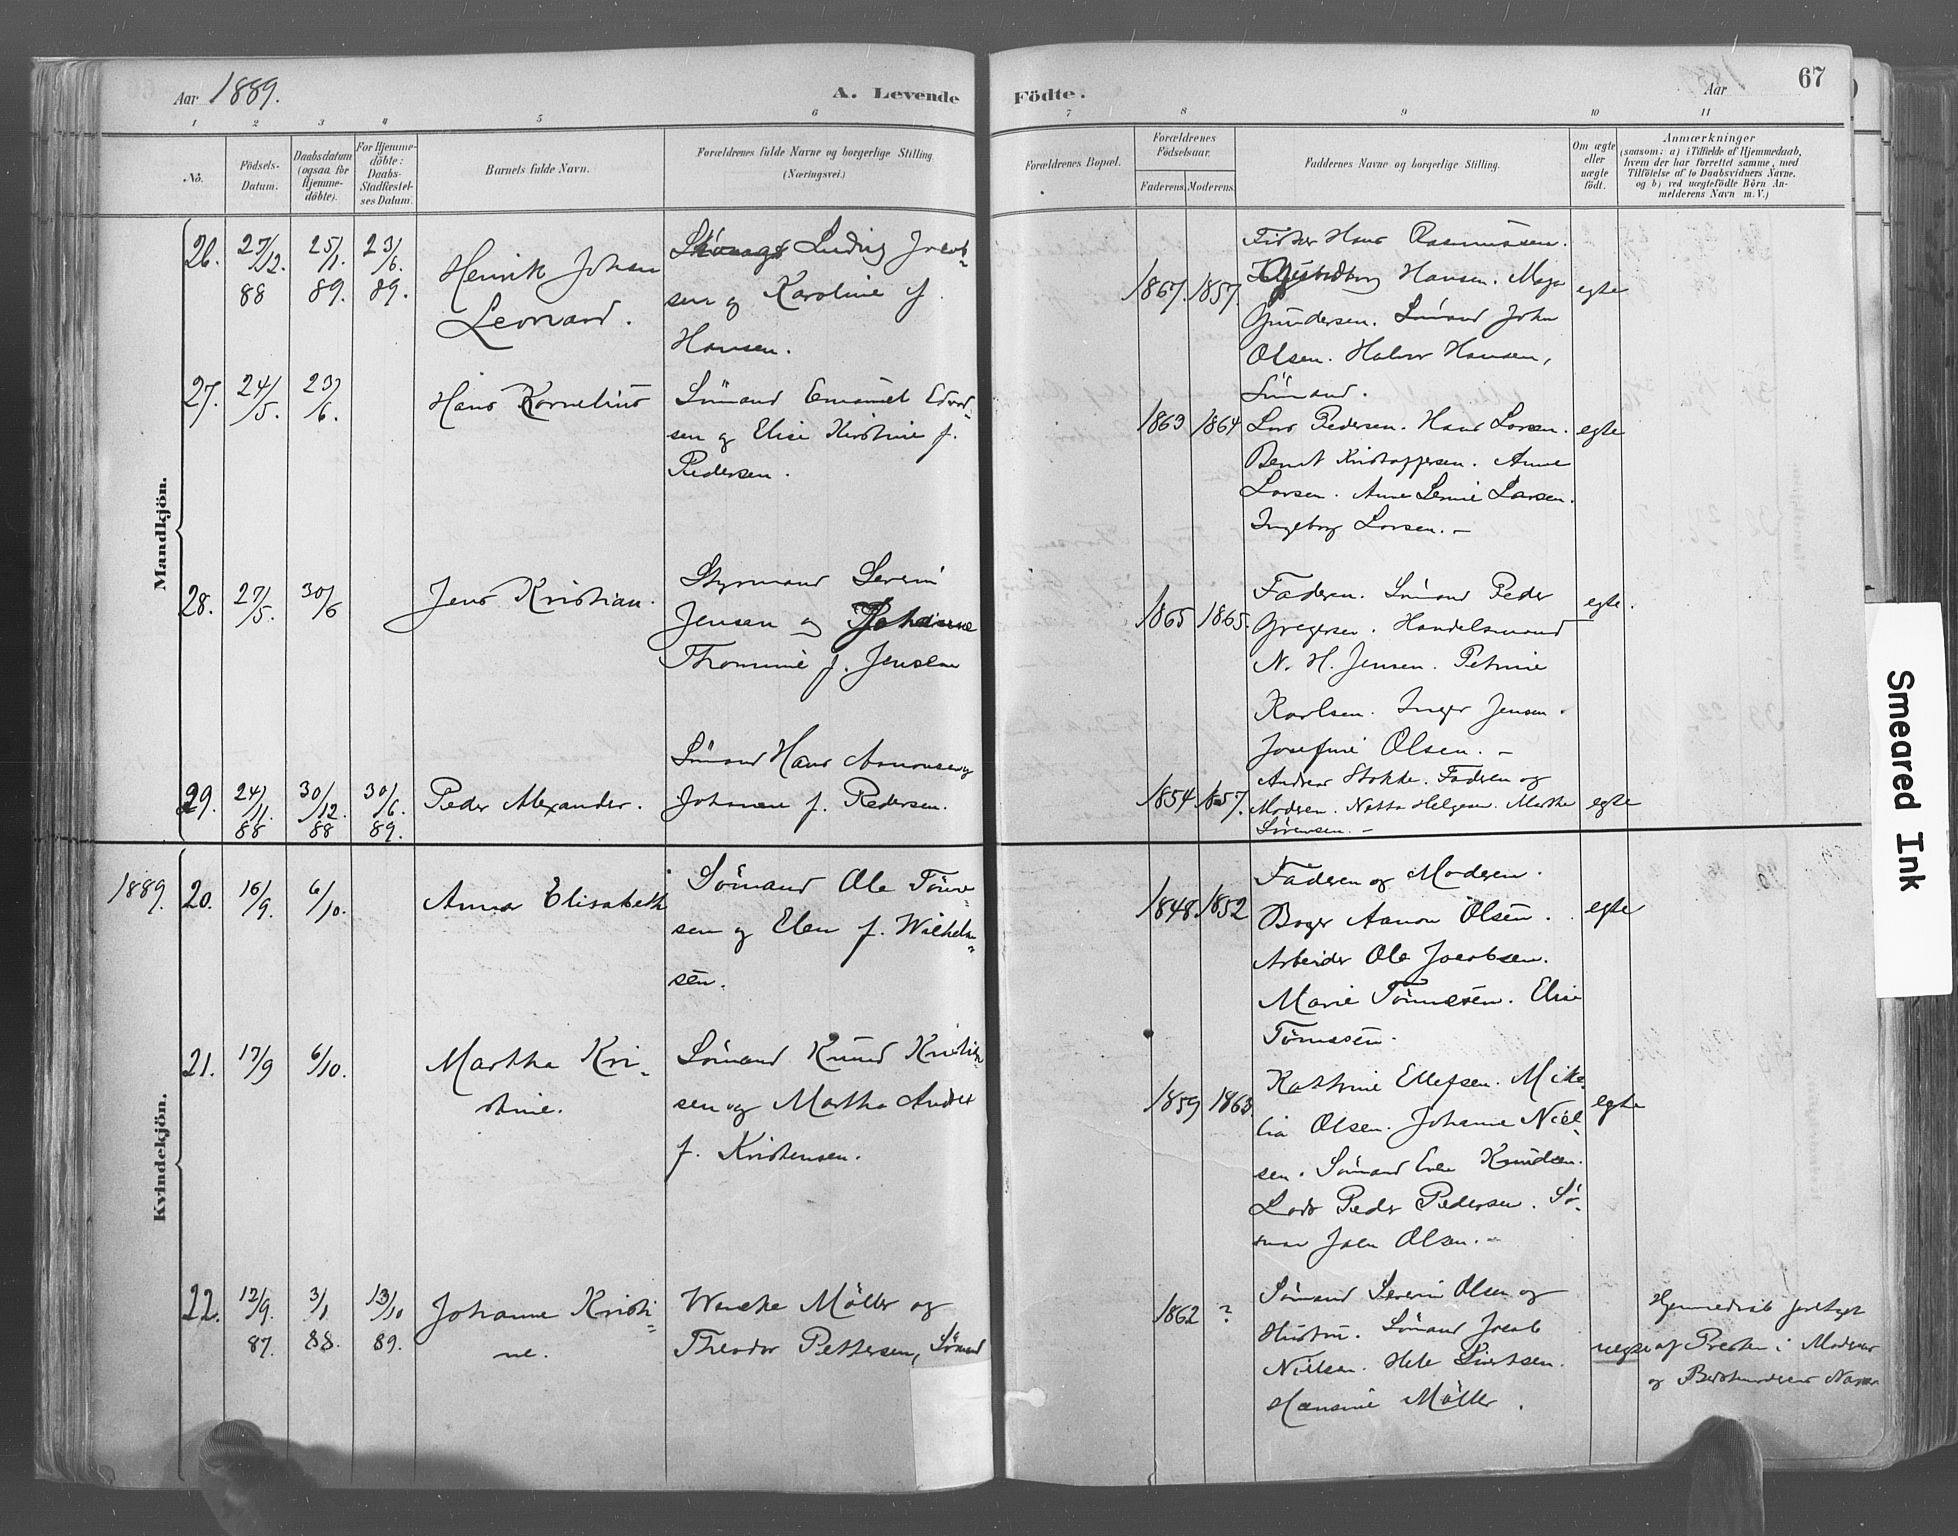 Aar 1889. A. Levende Födte. Aar 67
1 2 3 4 5 6 7 8 9 10 11
No. Födsels-Datum. Daabsdatum (ogsaa for Hjemme-döbte). For Hjemme-döbte: Daabs-Stadfæstel-ses Datum. Barnets fulde Navn. Forældrenes fulde Navne og borgerlige Stilling. (Næringsvei.) Forældrenes Bopæl. Forældrenes Födselsaar. Faderens. Moderens. Faddernes Navne og borgerlige Stilling. Om ægte eller uægte födt. Anmærkninger (saasom: a) i Tilfælde af Hjemmedaab, hvem der har forrettet samme, med Tilföielse af to Daabsvidners Navne, og b) ved uægtefödte Börn An-melderens Navn m. V.)
Mandkjön.
26. 27/12. 88 25/1. 89. 23/6. 89.
Henrik Johan
Leonard.
Ludvig Jacob-
sen og Karoline f.
Hansen.
1867. 1857.
Fisker Hans Rasmussen.
Hansen. Maja
Gundersen. Sömand John
Olsen. Halvor Hansen,
Sömand.
egte
27. 24/5. 23/6.
Hans Kornelius
Sömand Emanuel Edvard-
sen og Elise Kirstine f.
Pedersen.
1863 1864
Lars Pedersen. Hans Larsen.
Bernt Kristoffersen. Anne
Larsen. Anne Larsen.
Ingeborg Larsen. –
egte
28. 27/5. 30/6
Jens Kristian.
Styrmand Severin
Jensen og Johanne
Thomine f. Jensen
1865 1865.
Faderen. Sömand Peder
Gregersen. Handelsmand
N. H. Jensen. Petrine
Karlsen. Inger Jensen.
Josefine Olsen. –
egte.
29. 24/11. 88 30/12. 88 30/6. 89.
Peder Alexander.
Sömand Hans Aanonsen og
Johanne f. Pedersen.
1854. 1857.
Andreas Stokke. Faderen og
Moderen. Netta Helgesen. Martha
Sörensen. –
egte
Kvindekjön.
1889. 20. 16/9. 6/10.
Anna Elisabeth
Sömand Ole Tönnes-
sen og Elen f. Wilhelm-
sen.
1848. 1852
Faderen og Moderen.
Bager Aanon Olsen.
Arbeider Ole Jacobsen.
Marie Tönnesen. Elise
Tönnesen.
egte
21. 17/9 6/10.
Martha Kri-
stine.
Sömand Knud Kristen-
sen og Martha Andrea
f. Kristensen.
1859 1863.
Kathrine Ellefsen. Mike-
lia Olsen. Johanne Niel-
sen. Sömand Even Knudsen.
Lods Peder Pedersen. Sö-
man Joen Olsen. –
egte
22. 12/9. 87. 3/1 88. 13/10 89.
Johanne Kristi-
ne.
Wencke Möller og
Theodor Pettersen, Sömand
1862 ?
Sömand Severin Olsen og
Hustru. Sömand Jacob
Nielsen. Hele Sivertsen.
Hansine Möller.
uegte
Hjemmedaab foretaget
af Presten i Moderens
og Bedstemoderens Navn
Smeared Ink